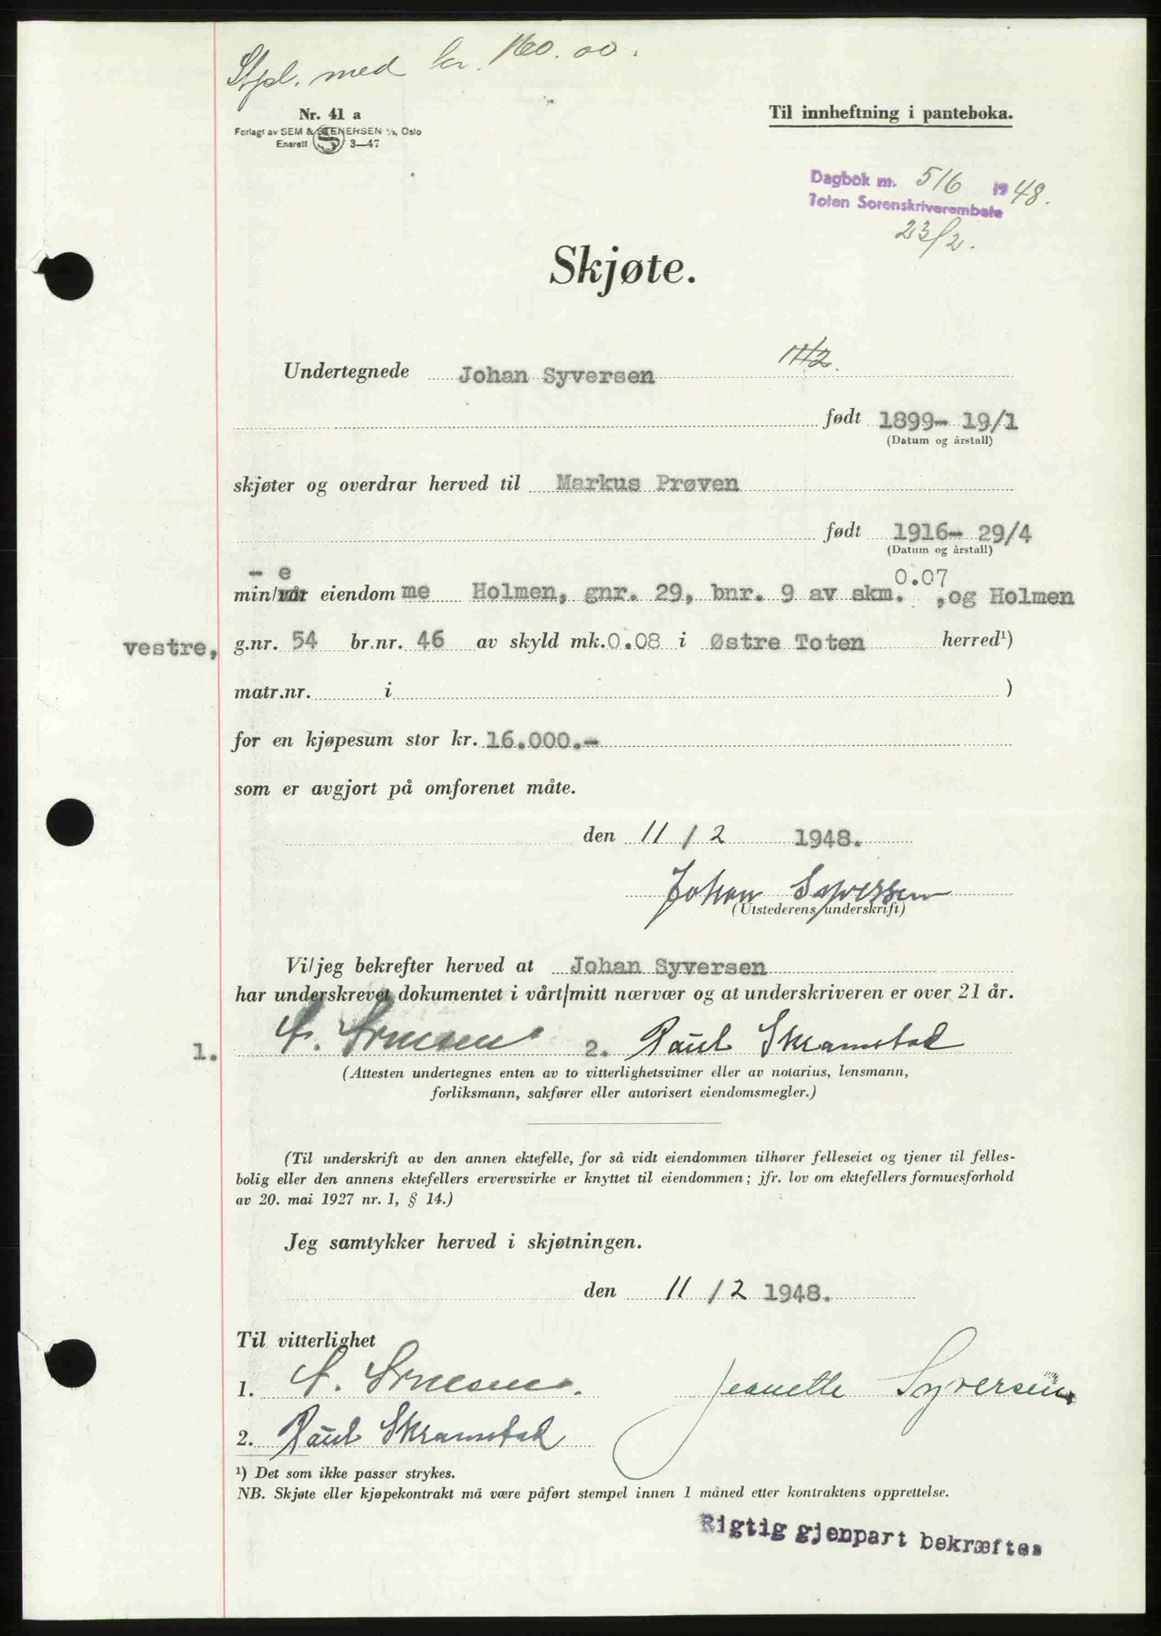 Stpl. med kr. 160.00.
Nr. 41 a
Forlagt av SEM & STENERSEN A/S, Oslo
Enerett S 3—47
Til innheftning i panteboka.
Dagbok nr. 516 1948.
Toten Sorenskriverembete
23/2.
Skjøte.
Undertegnede Johan Syversen
født 1899- 19/1
(Datum og årstall)
skjøter og overdrar herved til Markus Prøven
født 1916- 29/4
(Datum og årstall)
- e 0.07
min/vår eiendom me Holmen, gnr. 29, bnr. 9 av skm. ,og Holmen
vestre, g.nr. 54 br.nr. 46 av skyld mk. 0.08 i Østre Toten herred¹)
matr.nr. i )
for en kjøpesum stor kr. 16.000.-
som er avgjort på omforenet måte.
den 11/2 1948.
Johan Syversen
(Utstederens underskrift)
Vi/jeg bekrefter herved at Johan Syversen
har underskrevet dokumentet i vårt/mitt nærvær og at underskriveren er over 21 år.
1. 2. Paul Skramstad
(Attesten undertegnes enten av to vitterlighetsvitner eller av notarius, lensmann,
forliksmann, sakfører eller autorisert eiendomsmegler.)
(Til underskrift av den annen ektefelle, for så vidt eiendommen tilhører felleseiet og tjener til felles-
bolig eller den annens ektefellers ervervsvirke er knyttet til eiendommen; jfr. lov om ektefellers formuesforhold
av 20. mai 1927 nr. 1, § 14.)
Jeg samtykker herved i skjøtningen.
den 11/2 1948.
Til vitterlighet
1. Jeanette Syversen
2. Paul Skramstad
¹) Det som ikke passer strykes.
NB. Skjøte eller kjøpekontrakt må være påført stempel innen 1 måned etter kontraktens opprettelse.
Rigtig gjenpart bekræftes